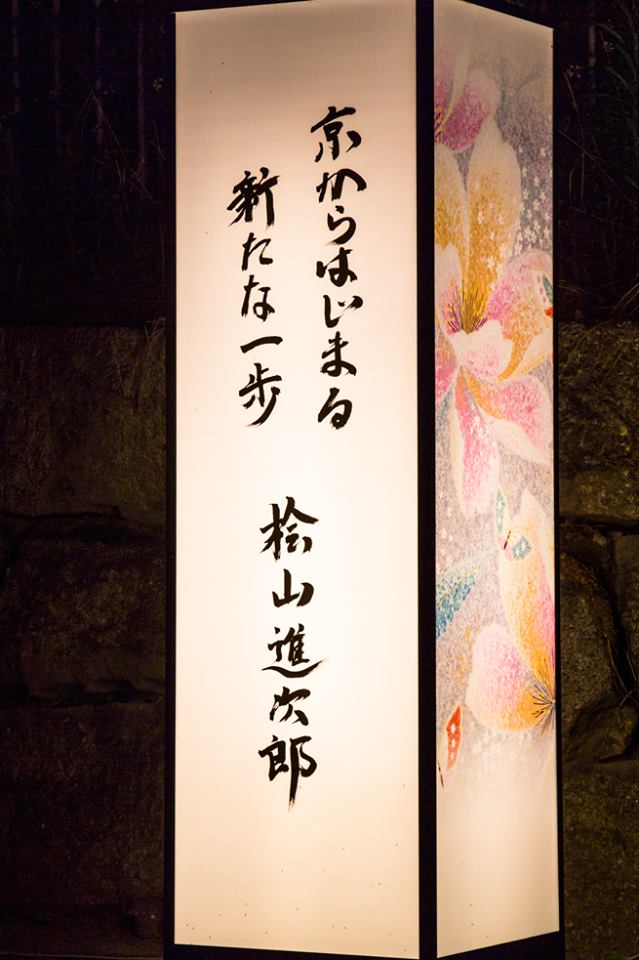 京からはじまる
新たな一歩
桧山進次郎